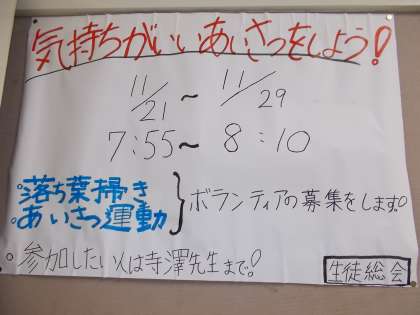 気持ちがいいあいさつをしよう!
11/21～11/29
7:55～8:10
○落ち葉掃き
○あいさつ運動
}ボランティアの募集をします!
○参加したい人は寺澤先生まで!
生徒総会